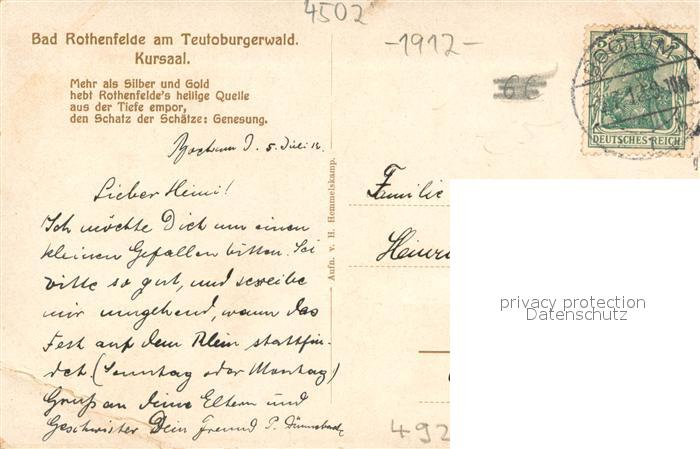 4502
Bad Rothenfelde am Teutoburgerwald.
Kursaal.
-1912-
Mehr als Silber und Gold
hebt Rothenfelde's heilige Quelle
aus der Tiefe empor,
den Schatz der Schätze: Genesung.
6€
BOCHUM
DEUTSCHES REICH
5. Juli 12.
Lieber Heini!
Ich möchte Dich um einen
kleinen Gefallen bitten. Sei
bitte so gut, und schreibe
mir umgehend, wann das
Fest auf dem Klein stattfin-
det. (Sonntag oder Montag)
Gruß an deine Eltern und
Geschwister Dein Freund P.
Aufn. v. H. Hemmelskamp.
Familie
Heinr
privacy protection
Datenschutz
492